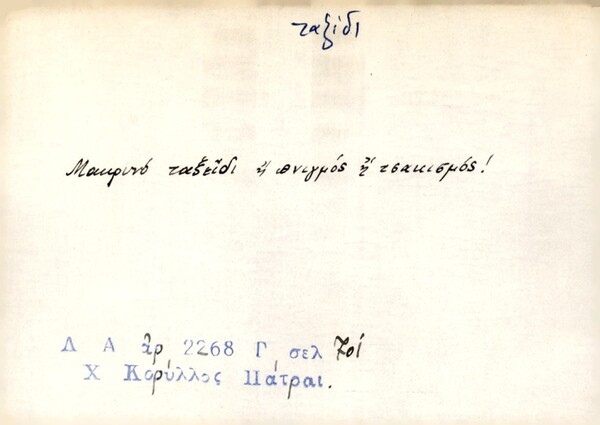 ταξίδι
Μακρυνό ταξεῖδι ἤ πνιγμός ἤ τσακισμός!
Λ Α ἀρ 2268 Γ, σελ
Χ Κορύλλος Πάτραι.